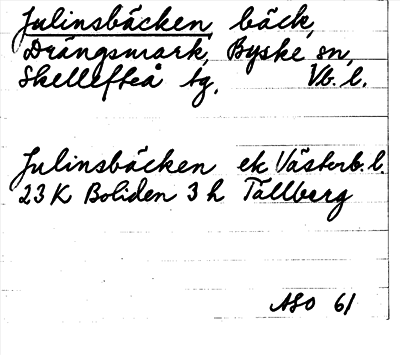 Julinsbäcken, bäck,
Drängsmark, Byske sn,
Skellefteå tg, Vb. l.
Julinsbäcken ek Västerb. l.
23 K Boliden 3 h Tallberg
ASO 61